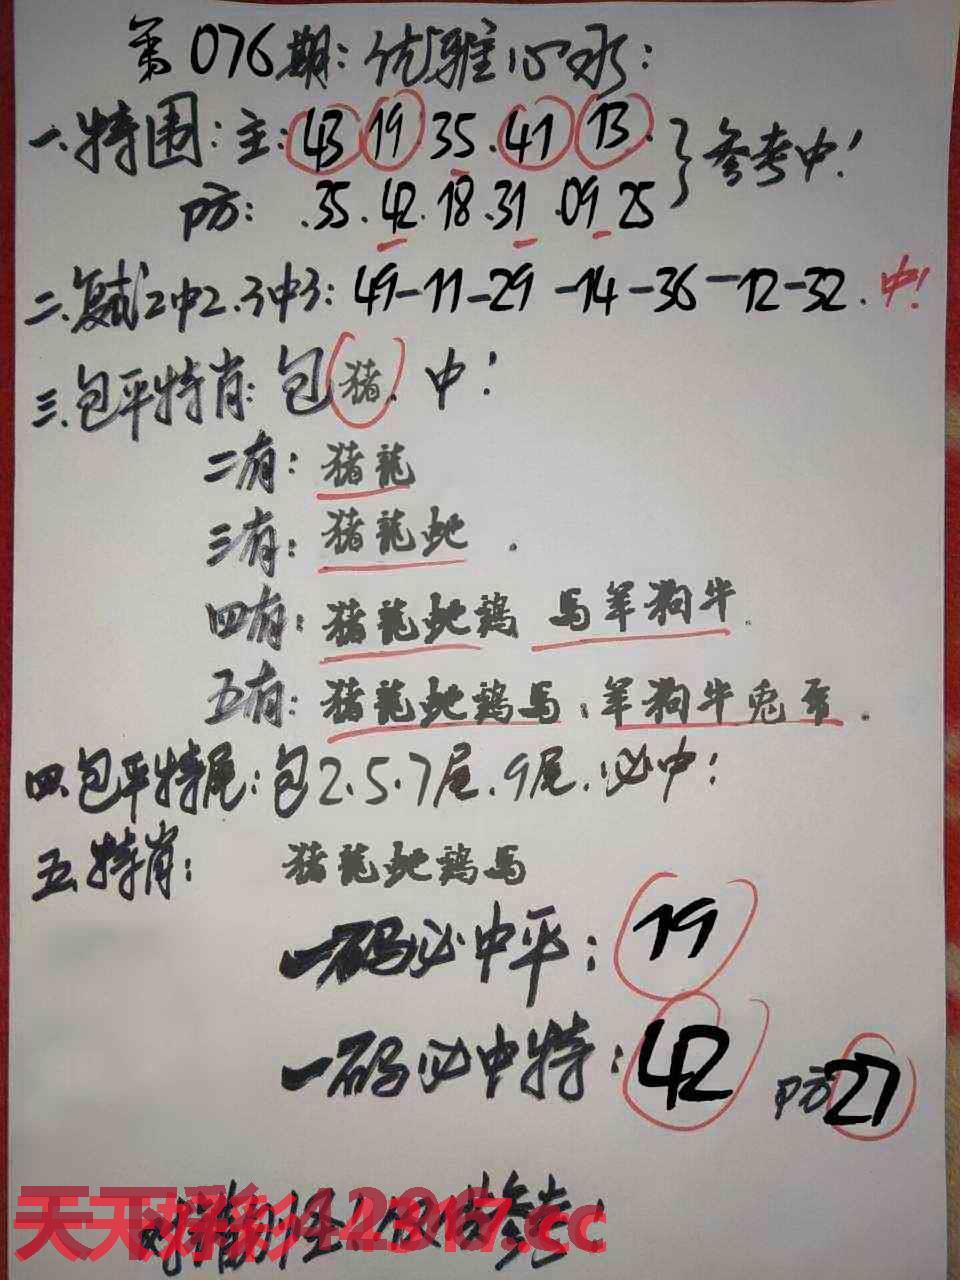 第076期:优雅心水:
一.特围:主:43 19 35.41 13.
防: .35.42.18.31.09 25
参考中!
二.复试2中2.3中3:49-11-29-14-36-12-32.中!
三.包平特肖:包猪.中!
二有:猪龍
三有:猪龍蛇.
四有:猪龍蛇鷄 馬羊狗牛.
五有:猪龍蛇鷄馬:羊狗牛兎.
四.包平特尾:包2.5.7尾.9尾.必中!
五.特肖: 猪龍蛇鷄馬
一码必中平:19
一码必中特:42 防27
天下彩 .cc
参考!